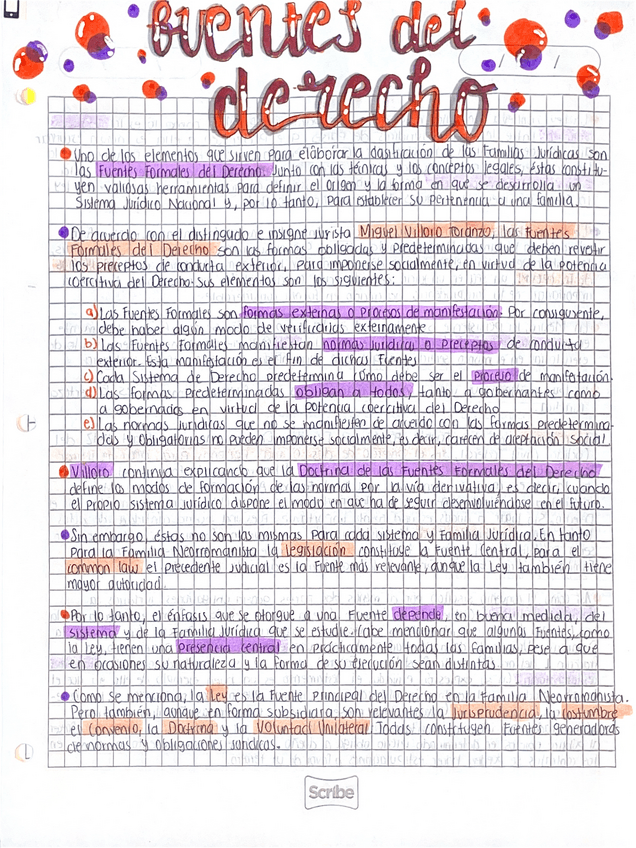 Fuentes del
derecho
Uno de los elementos que sirven para elaborar la clasificación de las Familias Jurídicas son
las Fuentes Formales del Derecho. Junto con las técnicas y los conceptos legales, éstas constitu-
yen valiosas herramientas para definir el origen y la forma en que se desarrolla un
Sistema Jurídico Nacional y, por lo tanto, para establecer su pertenencia a una familia.
De acuerdo con el distinguido e insigne jurista Miguel Villoro Toranzo, las Fuentes
Formales del Derecho son las formas obligadas y predeterminadas que deben revestir
los preceptos de conducta exterior, para imponerse socialmente, en virtud de la potencia
coercitiva del Derecho. Sus elementos son los siguientes:
a) Las Fuentes Formales son formas externas o procesos de manifestación. Por consiguiente,
debe haber algún modo de verificarlas externamente
b) Las Fuentes Formales manifiestan normas jurídica o preceptos de conducta
exterior. Esta manifestación es el fin de dichas Fuentes
c) Cada Sistema de Derecho predetermina cómo debe ser el proceso de manifetación.
d) Las formas Predeterminadas obligan a todos, tanto a gobernantes como
a gobernados en virtud de la potencia coercitiva del Derecho
e) Las normas jurídicas que no se manifiesten de acuerdo con las formas predetermina-
das y obligatorias no pueden imponerse socialmente, es decir, carecen de aceptación social
Villoro continua explicando que la Doctrina de las Fuentes Formales del Derecho
define los modos de formación de las normas por la vía derivativa, es decir, cuando
el propio sistema jurídico dispone el modo en que ha de seguir desenvolviéndose en el futuro.
Sin embargo, éstas no son las mismas para cada sistema y Familia Jurídica. En tanto
para la Familia Neorromanista la legislación constituye la Fuente Central, para el
common law el precedente judicial es la Fuente más relevante, aunque la Ley también tiene
mayor autoridad.
Por lo tanto, el énfasis que se otorgue a una Fuente depende, en buena medida, del
sistema y de la Familia Jurídica que se estudie. Cabe mencionar que algunas Fuentes, como
la Ley, tienen una presencia central en prácticamente todas las familias, pese a que
en ocasiones su naturaleza y la forma de su ejecución sean distintas
Como se menciona, la Ley es la Fuente principal del Derecho en la Familia Neorromanista.
Pero también, aunque en forma subsidiaria son relevantes la Jurisprudencia, la costumbre
el convenio, la Doctrina y la Voluntad Unilateral. Todas constituyen Fuentes generadoras
de normas y obligaciones jurídicas.
Scribe